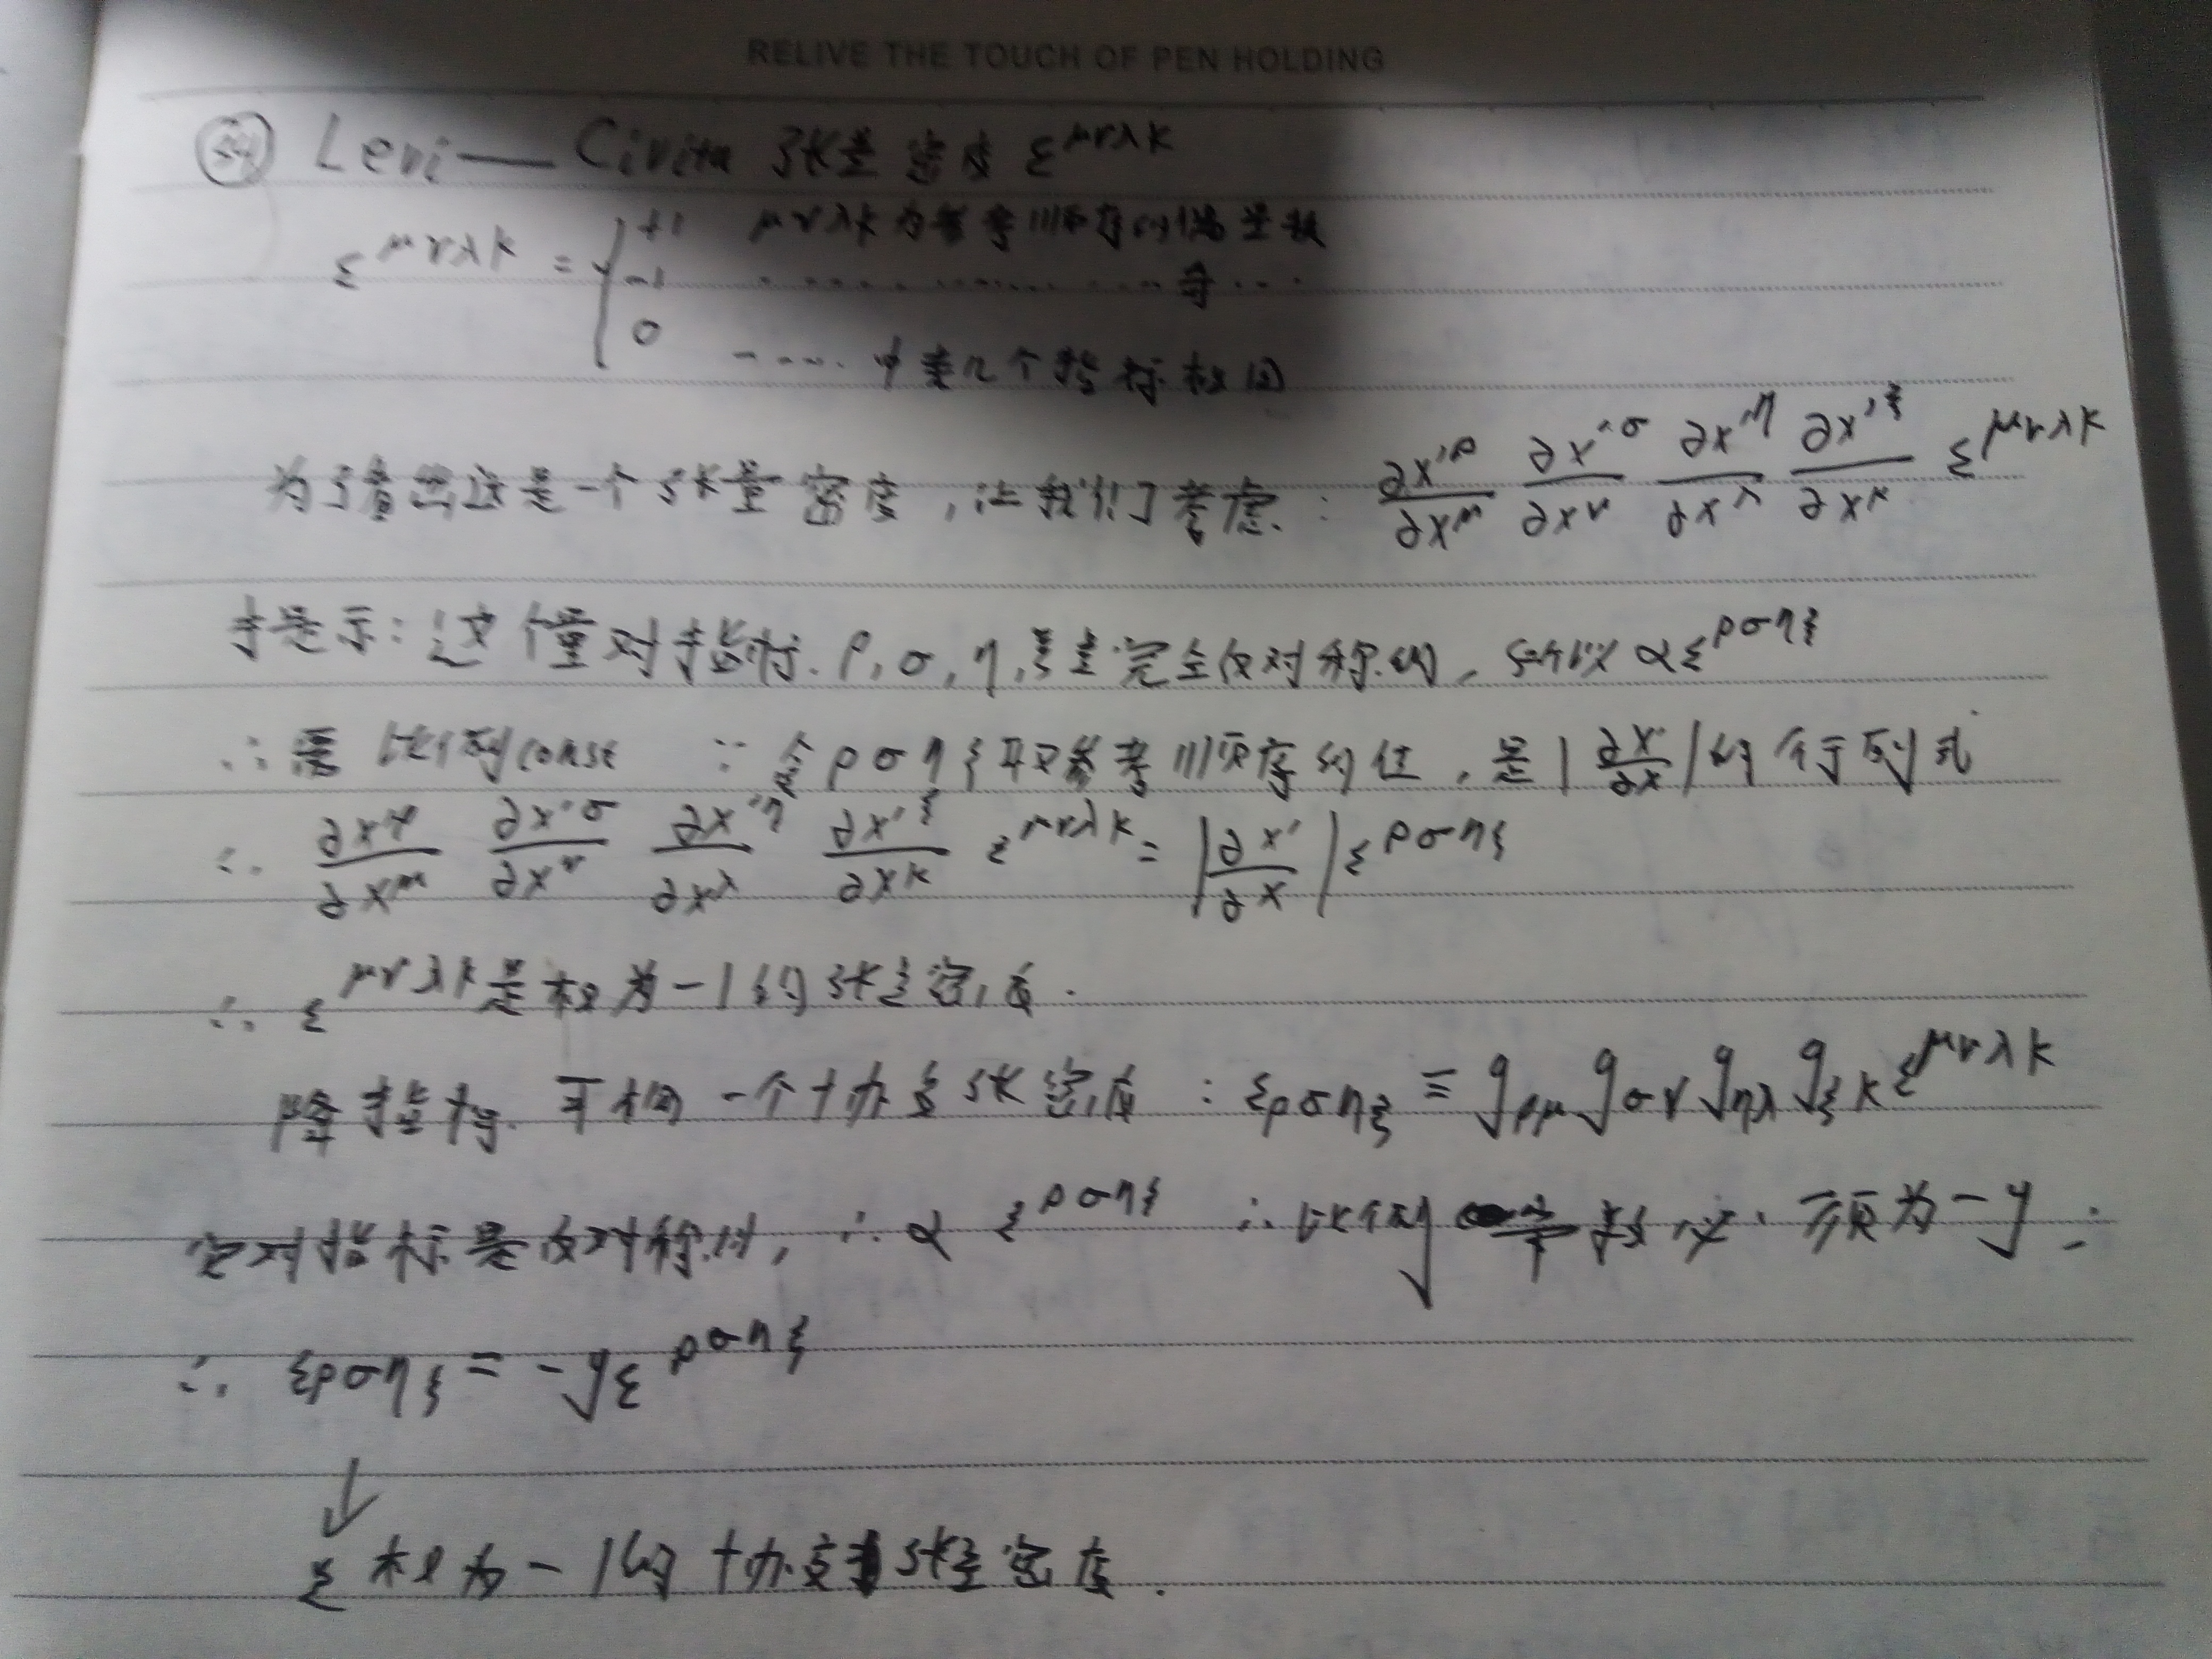 RELIVE THE TOUCH OF PEN HOLDING
Levi—Civita 张量密度 ε^{μνλκ}
ε^{μνλκ} = { +1 μνλκ为参考顺序的偶置换
-1 ………………奇…
0 ……中某几个指标相同
为了看出这是一个张量密度,让我们考虑: ∂x'^ρ/∂x^μ ∂x'^σ/∂x^ν ∂x'^η/∂x^λ ∂x'^ξ/∂x^κ ε^{μνλκ}
这个量对于指标 ρ, σ, η, ξ是完全反对称的, 所以 ∝ ε^{ρσηξ}
∴ 比例const ∵ 令ρσηξ取参考顺序的值, 是|∂x'/∂x|的行列式
∴ ∂x'^ρ/∂x^μ ∂x'^σ/∂x^ν ∂x'^η/∂x^λ ∂x'^ξ/∂x^κ ε^{μνλκ} = |∂x'/∂x| ε^{ρσηξ}
∴ ε^{μνλκ}是权为-1的张量密度.
降指标 可构一个协变张密度 : ε_{ρσηξ} ≡ g_{ρμ} g_{σν} g_{ηλ} g_{ξκ} ε^{μνλκ}
它对指标是反对称的, ∴ ∝ ε^{ρσηξ} ∴ 比例 数必须为-g :
∴ ε_{ρσηξ} = -g ε^{ρσηξ}
↓
ε 权为-1的协变张量密度.